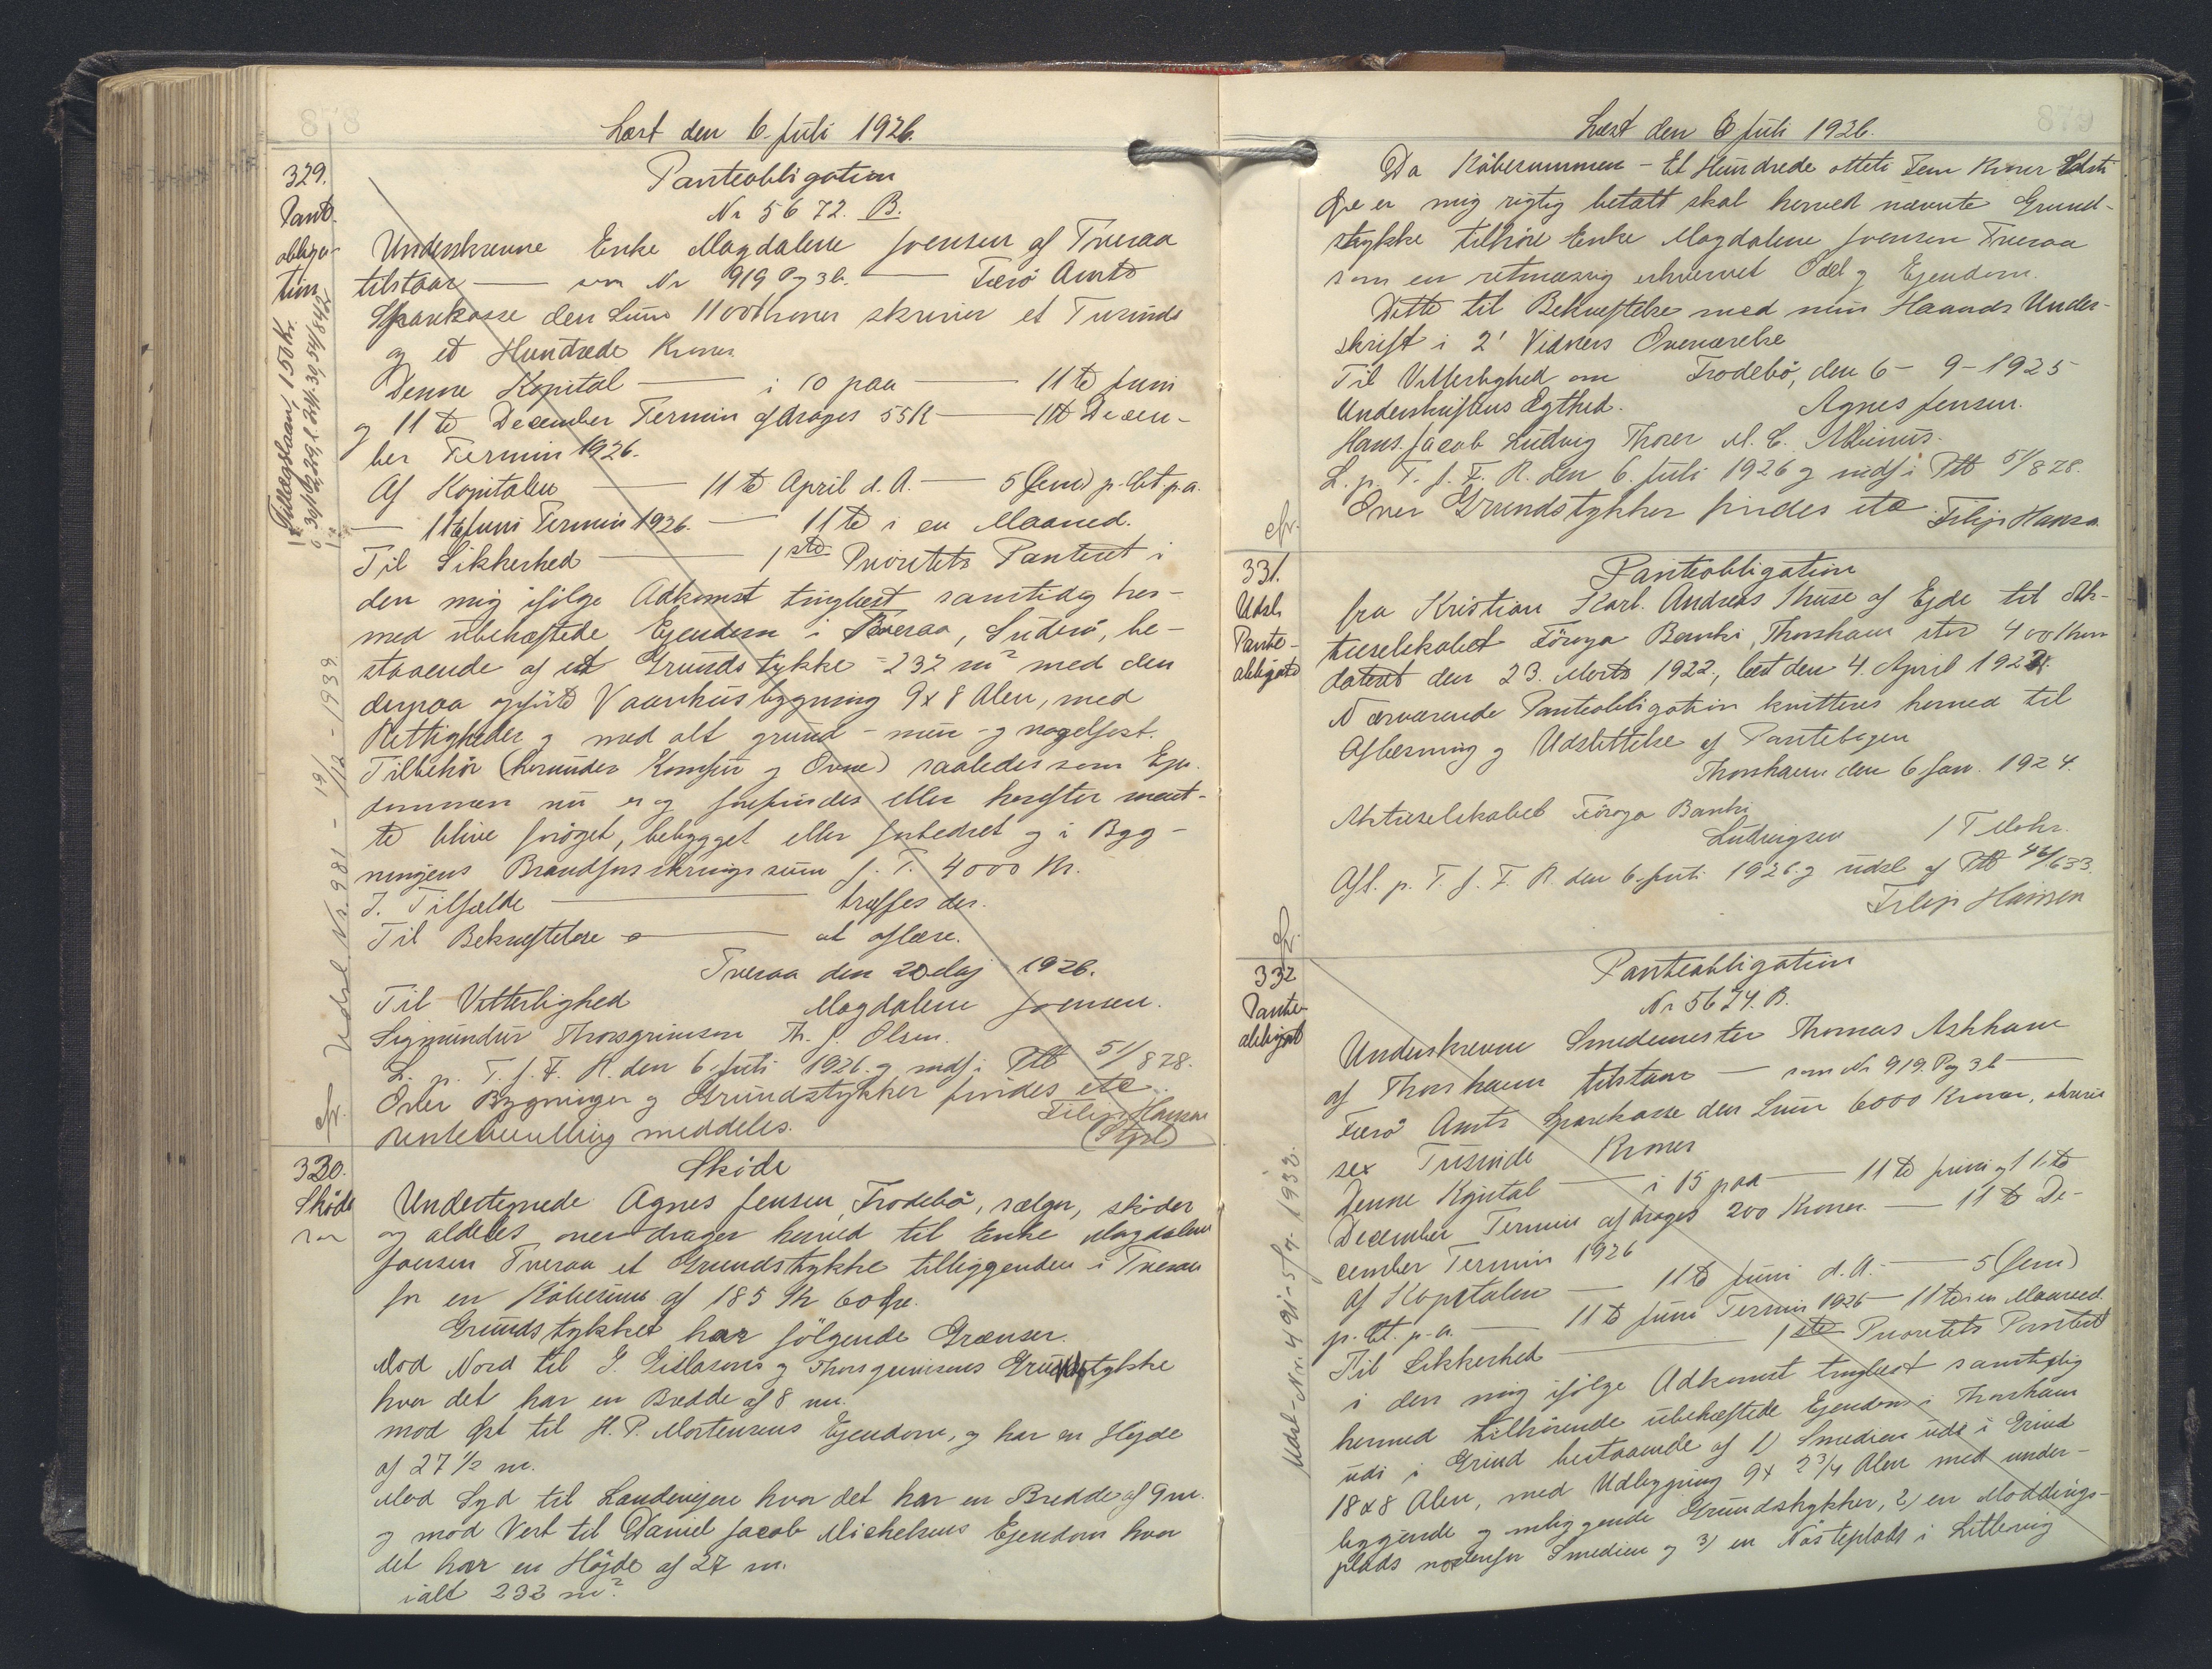 878
Læst den 6. Juli 1926.
329.
Pant-
obliga-
tion
Tillægslaan, 150 Kr.
Udsl. Nr. 981 - 19/12 - 1932
cfr.
Panteobligation
Nr 5672. B.
Underskrevne Enke Magdalene Joensen af Tveraa
tilstaar — som Nr 919 Pag 36. — Færø Amts
Sparekasse den Sum 1100 Kroner skriver et Tusinde
og et Hundrede Kroner
Denne Kapital — i 10 paa — 11te Juni
og 11te December Termin afdrages 55 K — 11te Decem-
ber Termin 1926.
Af Kapitalen — 11te April d. A. — 5 (fem) p. Ct. p.a.
— 11te Juni Termin 1926. — 11te i en Maaned.
Til Sikkerhed — 1ste Prioritets Panteret i
den mig ifølge Adkomst tinglæst samtidig her-
med ubehæftede Ejendom i Tveraa, Suderø, be-
staaende af et Grundstykke = 232 m² med den
derpaa opførte Vaanhusbygning 9 x 8 Alen, med
Rettigheder og med alt grund- mur- og nagelfast
Tilbehør (herunder Komfur og Ovne) saaledes som Ejen-
dommen nu er og forefindes eller herefter maat-
te blive forøget, bebygget eller forbedret og i Byg-
ningens Brandforsikringssum f. T. 4000 Kr.
I. Tilfælde — træffes der.
Til Bekræftelse — at aflæse.
Tveraa den 20 Maj 1926.
Til Vitterlighed Magdalene Joensen.
Sigmundur Thorsgrimson Th. J. Olsen.
L. p. T. f. F. R. den 6. Juli 1926 og indf. i Ptb 51/878.
Over Bygninger og Grundstykker findes etc.
Filip Hansen
Rentebevilling meddeles.
(Kst)
330.
Skøde
Skøde
Undertegnede Agnes Jensen, Frodebø, sælger, skøder
og aldeles overdrager herved til Enke Magdalene
Joensen Tveraa et Grundstykke tilliggenden i Tveraa
for en Købesum af 185 Kr 60 Øre.
Grundstykket har følgende Grænser.
Mod Nord til J. Gislasons og Thorsgrimsons Grundstykke
hvor det har en Bredde af 8 m.
mod Øst til H. P. Mortensens Ejendom, og har en Højde
af 27½ m.
Mod Syd til Landevejen hvor det har en Bredde af 9 m.
og mod Vest til Daniel Jacob Michelsens Ejendom hvor
det har en Højde af 27 m.
ialt 232 m²
879
Læst den 6 Juli 1926.
Da Købesummen - Et Hundrede otteti Fem Kroner
Øre er mig rigtig betalt skal herved nævnte Grund-
stykke tilhøre Enke Magdalene Joensen Tveraa
som en retmæssig erhvervet Odel og Ejendom.
Dette til Bekræftelse med min Haands Under-
skrift i 2' Vidners Overværelse
Til Vitterlighed om Frodebø, den 6 - 9 - 1925
Underskriftens Ægthed. Agnes Jensen.
Hans Jacob Ludvig Thorer M. C. Albinus.
L. p. T. f. F. R. den 6. Juli 1926 og indf. i Ptb 51/878.
Over Grundstykker findes etc. Filip Hansen
cfr.
331.
Udsl.
Pante-
obligat
cfr.
Panteobligation
fra Kristian Karl Andreas Thuse af Ejde til Ak-
tieselskabet Föroya Banki, Thorshavn stor 400 Kroner
dateret den 23. Marts 1922, læst den 4. April 1922.
Nærværende Panteobligation kvitteres hermed til
Aflæsning og Udslettelse af Pantebogen
Thorshavn den 6 Jan. 1924.
Aktieselskabet Föroya Banki
Ludvigsen / T Mohr.
Afl. p. T. f. F. R. den 6. Juli 1926 og udsl. af Ptb 46/633.
Filip Hansen
332
Pante-
obligat
Udsl. Nr. 491 - 5/7 1932.
Panteobligation
Nr 5674. B.
Underskrevne Smedemester Thomas Askham
af Thorshavn tilstaar — som Nr 919. Pag 36 —
Færø Amts Sparekasse den Sum 6000 Kroner, skriver
sex Tusinde Kroner
Denne Kapital — i 15 paa — 11te Juni og 11te
December Termin afdrages 200 Kroner. — 11te De-
cember Termin 1926
Af Kapitalen — 11te Juni d. A. — 5 (fem)
p. Ct. p.a. — 11te Juni Termin 1926 — 11te i en Maaned.
Til Sikkerhed — 1ste Prioritets Panteret
i den mig ifølge Adkomst tinglæst samtidig
hermed tilhørende ubehæftede Ejendom i Thorshavn
udi i Grind bestaaende af 1) Smedien udi i Grind
18 x 8 Alen, med Udbygning 9 x 2¾ Alen med under-
liggende og omliggende Grundstykker, 2) en Møddings-
plads nordenfor Smedien og 3) en Nøsteplads i Littlevig